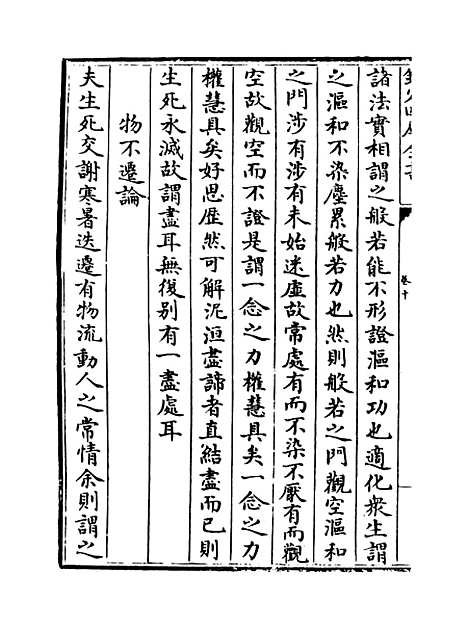 諸法實相謂之般若能不形證漚和功也適化衆生謂
之漚和不染塵累般若力也然則般若之門觀空漚和
之門涉有涉有未始迷虛故常處有而不染不厭有而觀
空故觀空而不證是謂一念之力權慧具矣一念之力
權慧具矣好思歴然可解泥洹盡諦者直結盡而已則
生死永滅故謂盡耳無復别有一盡處耳
物不遷論
夫生死交謝寒暑迭遷有物流動人之常情余則謂之
卷十